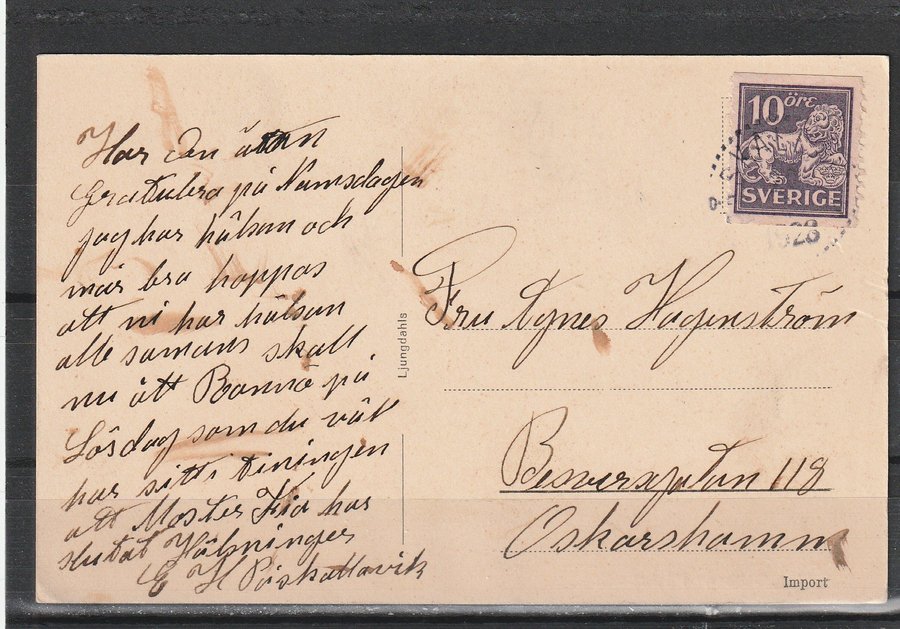 Har den äran
Gratulera på Namsdagen
jag har hälsan och
mår bra hoppas
att ni har hälsan
alle samans skall
nu ått på
Lösdag som du vält
har sitt i tiningen
att Moster Fia har
slutat Hälsninger
E H
Ljungdahls
10 öre
SVERIGE
1928
Fru Agnes Hagenström
118
Oskarshamn
Import